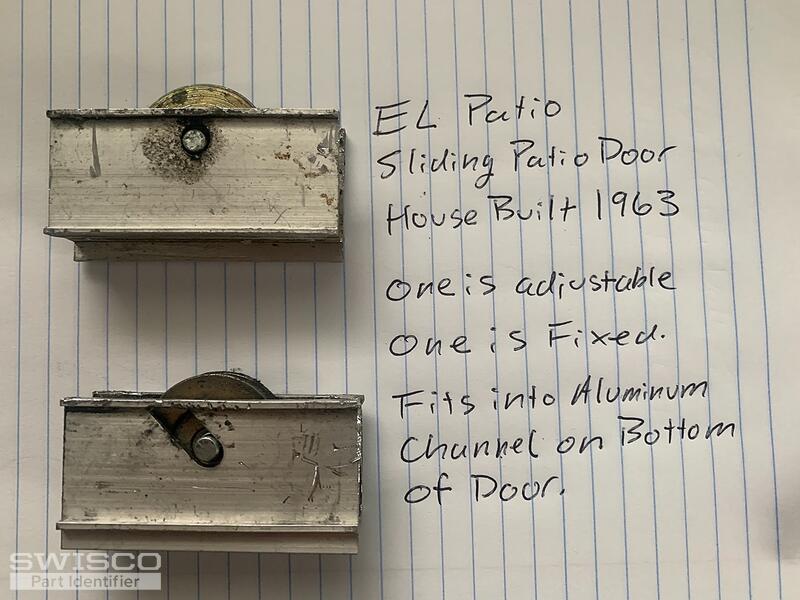 EL Patio
Sliding Patio Door
House Built 1963
one is adjustable
one is Fixed.
Fits into Aluminum
Channel on Bottom
of Door.
SWISCO
Part Identifier